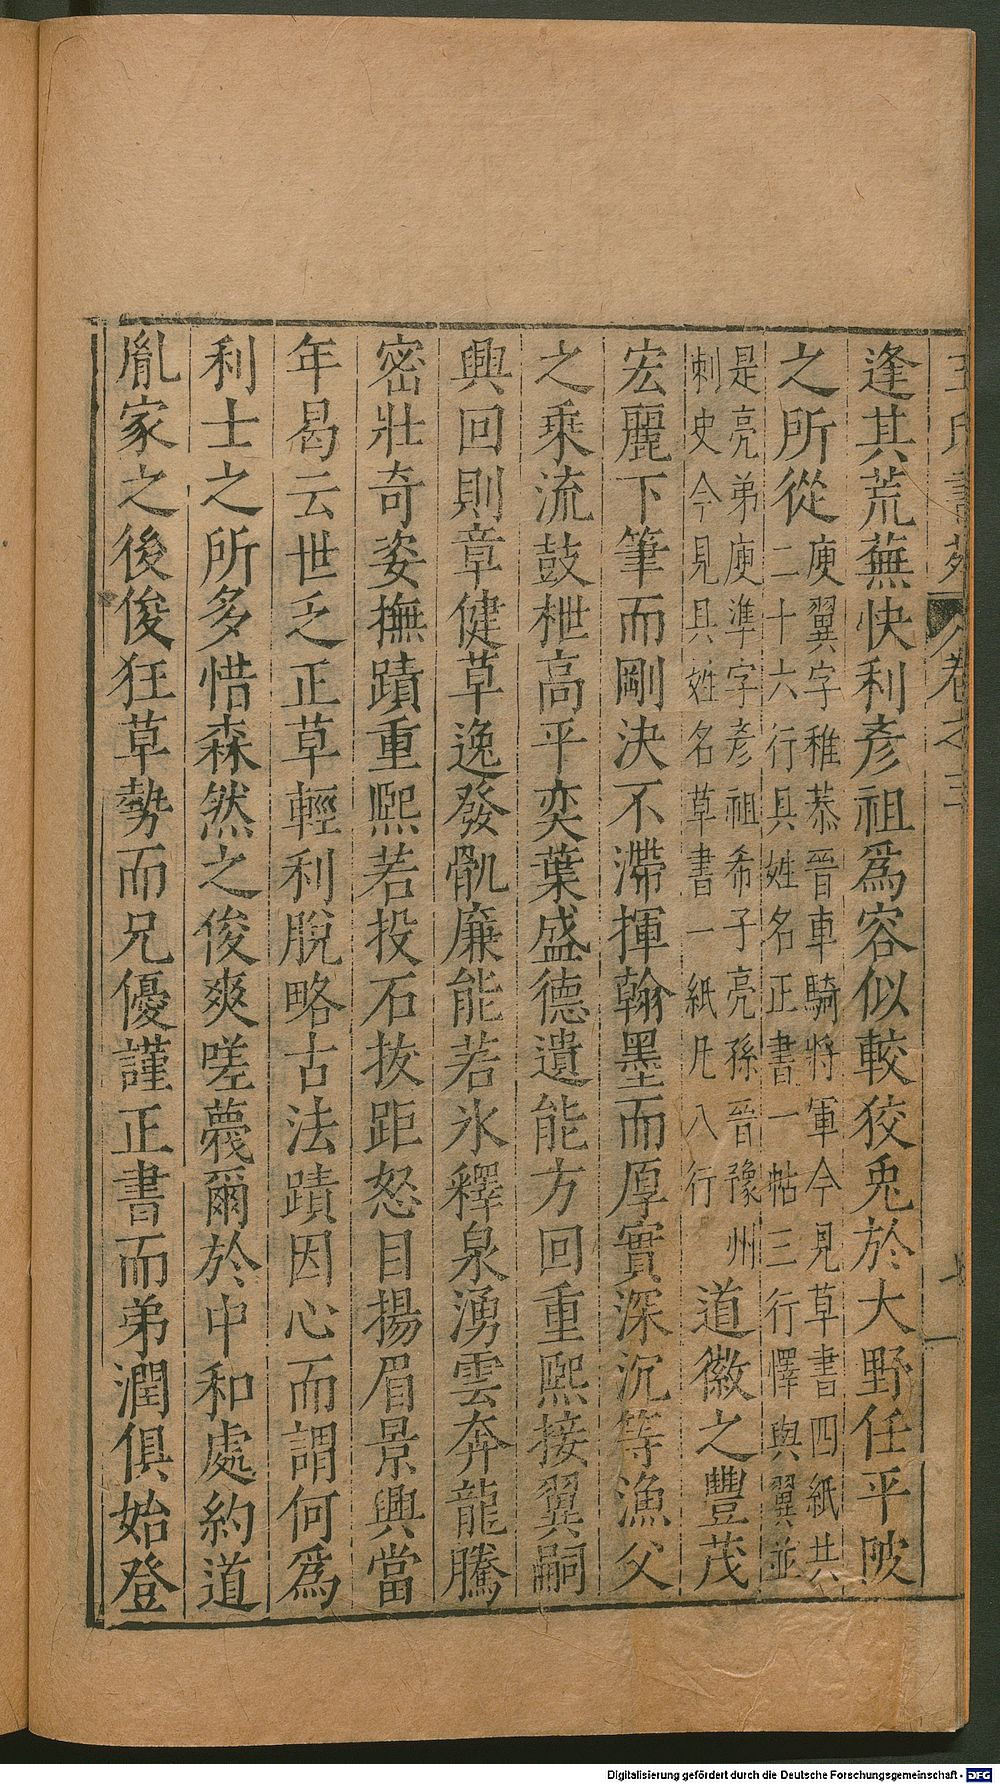 王氏書苑 卷之三
逢其荒蕪快利彥祖爲容似較狡兎於大野任平陂
之所從
庾翼字稚恭晉車騎將軍今見草書四紙共
二十六行具姓名正書一帖三行懌與翼並
是亮弟庾準字彥祖希子亮孫晉豫州
刺史今見具姓名草書一紙凡八行
道徽之豐茂
宏麗下筆而剛決不滯揮翰墨而厚實深沉等漁父
之乗流鼓枻高平奕葉盛德遺能方回重熙接翼嗣
興回則章健草逸發骩廉能若氷釋泉湧雲奔龍騰
密壯奇姿撫蹟重熙若投石抜距怒目揚眉景興當
年曷云世乏正草輕利脫略古法蹟因心而謂何爲
利士之所多惜森然之俊爽嗟薎爾於中和處約道
胤家之後俊狂草勢而兄優謹正書而弟潤俱始登
Digitalisierung gefördert durch die Deutsche Forschungsgemeinschaft - DFG